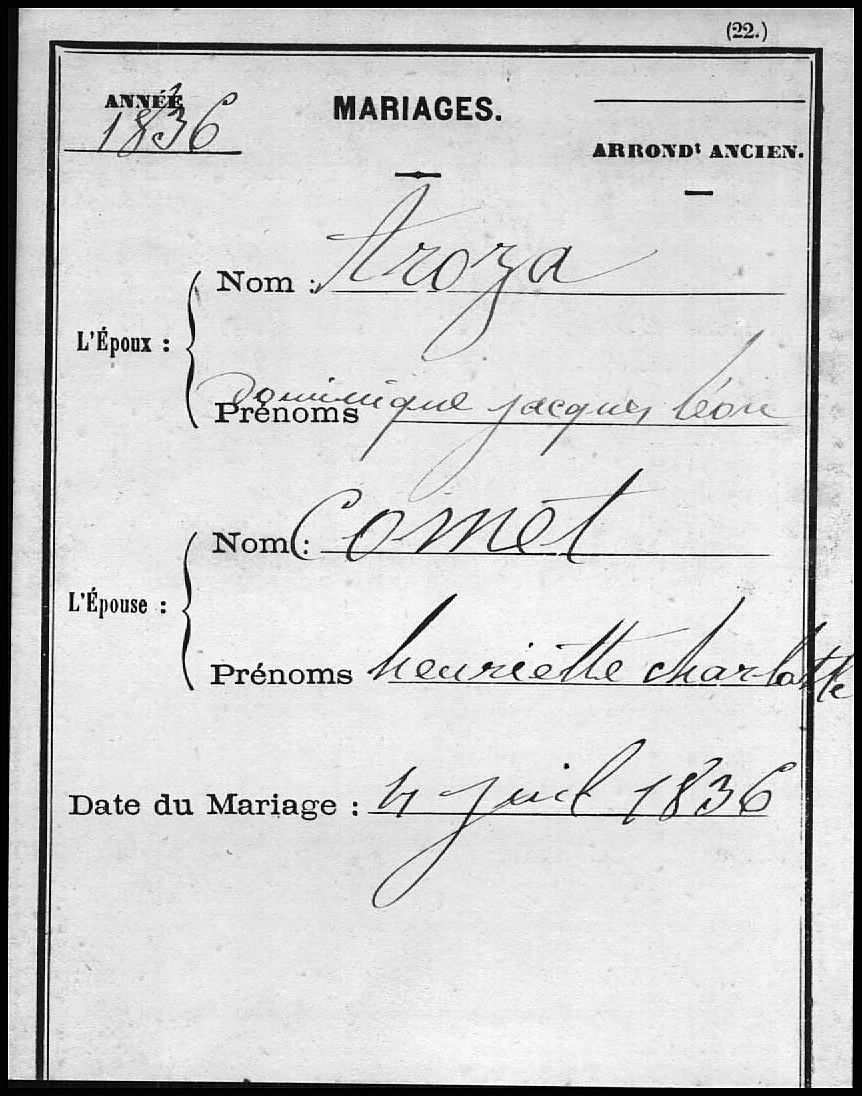 (22.)
ANNÉE
1836
MARIAGES.
ARRONDt ANCIEN.
Nom : Aroza
L'Époux :
Prénoms Dominique jacques léon
Nom : Comet
L'Épouse :
Prénoms henriette charlotte
Date du Mariage : 4 juil 1836